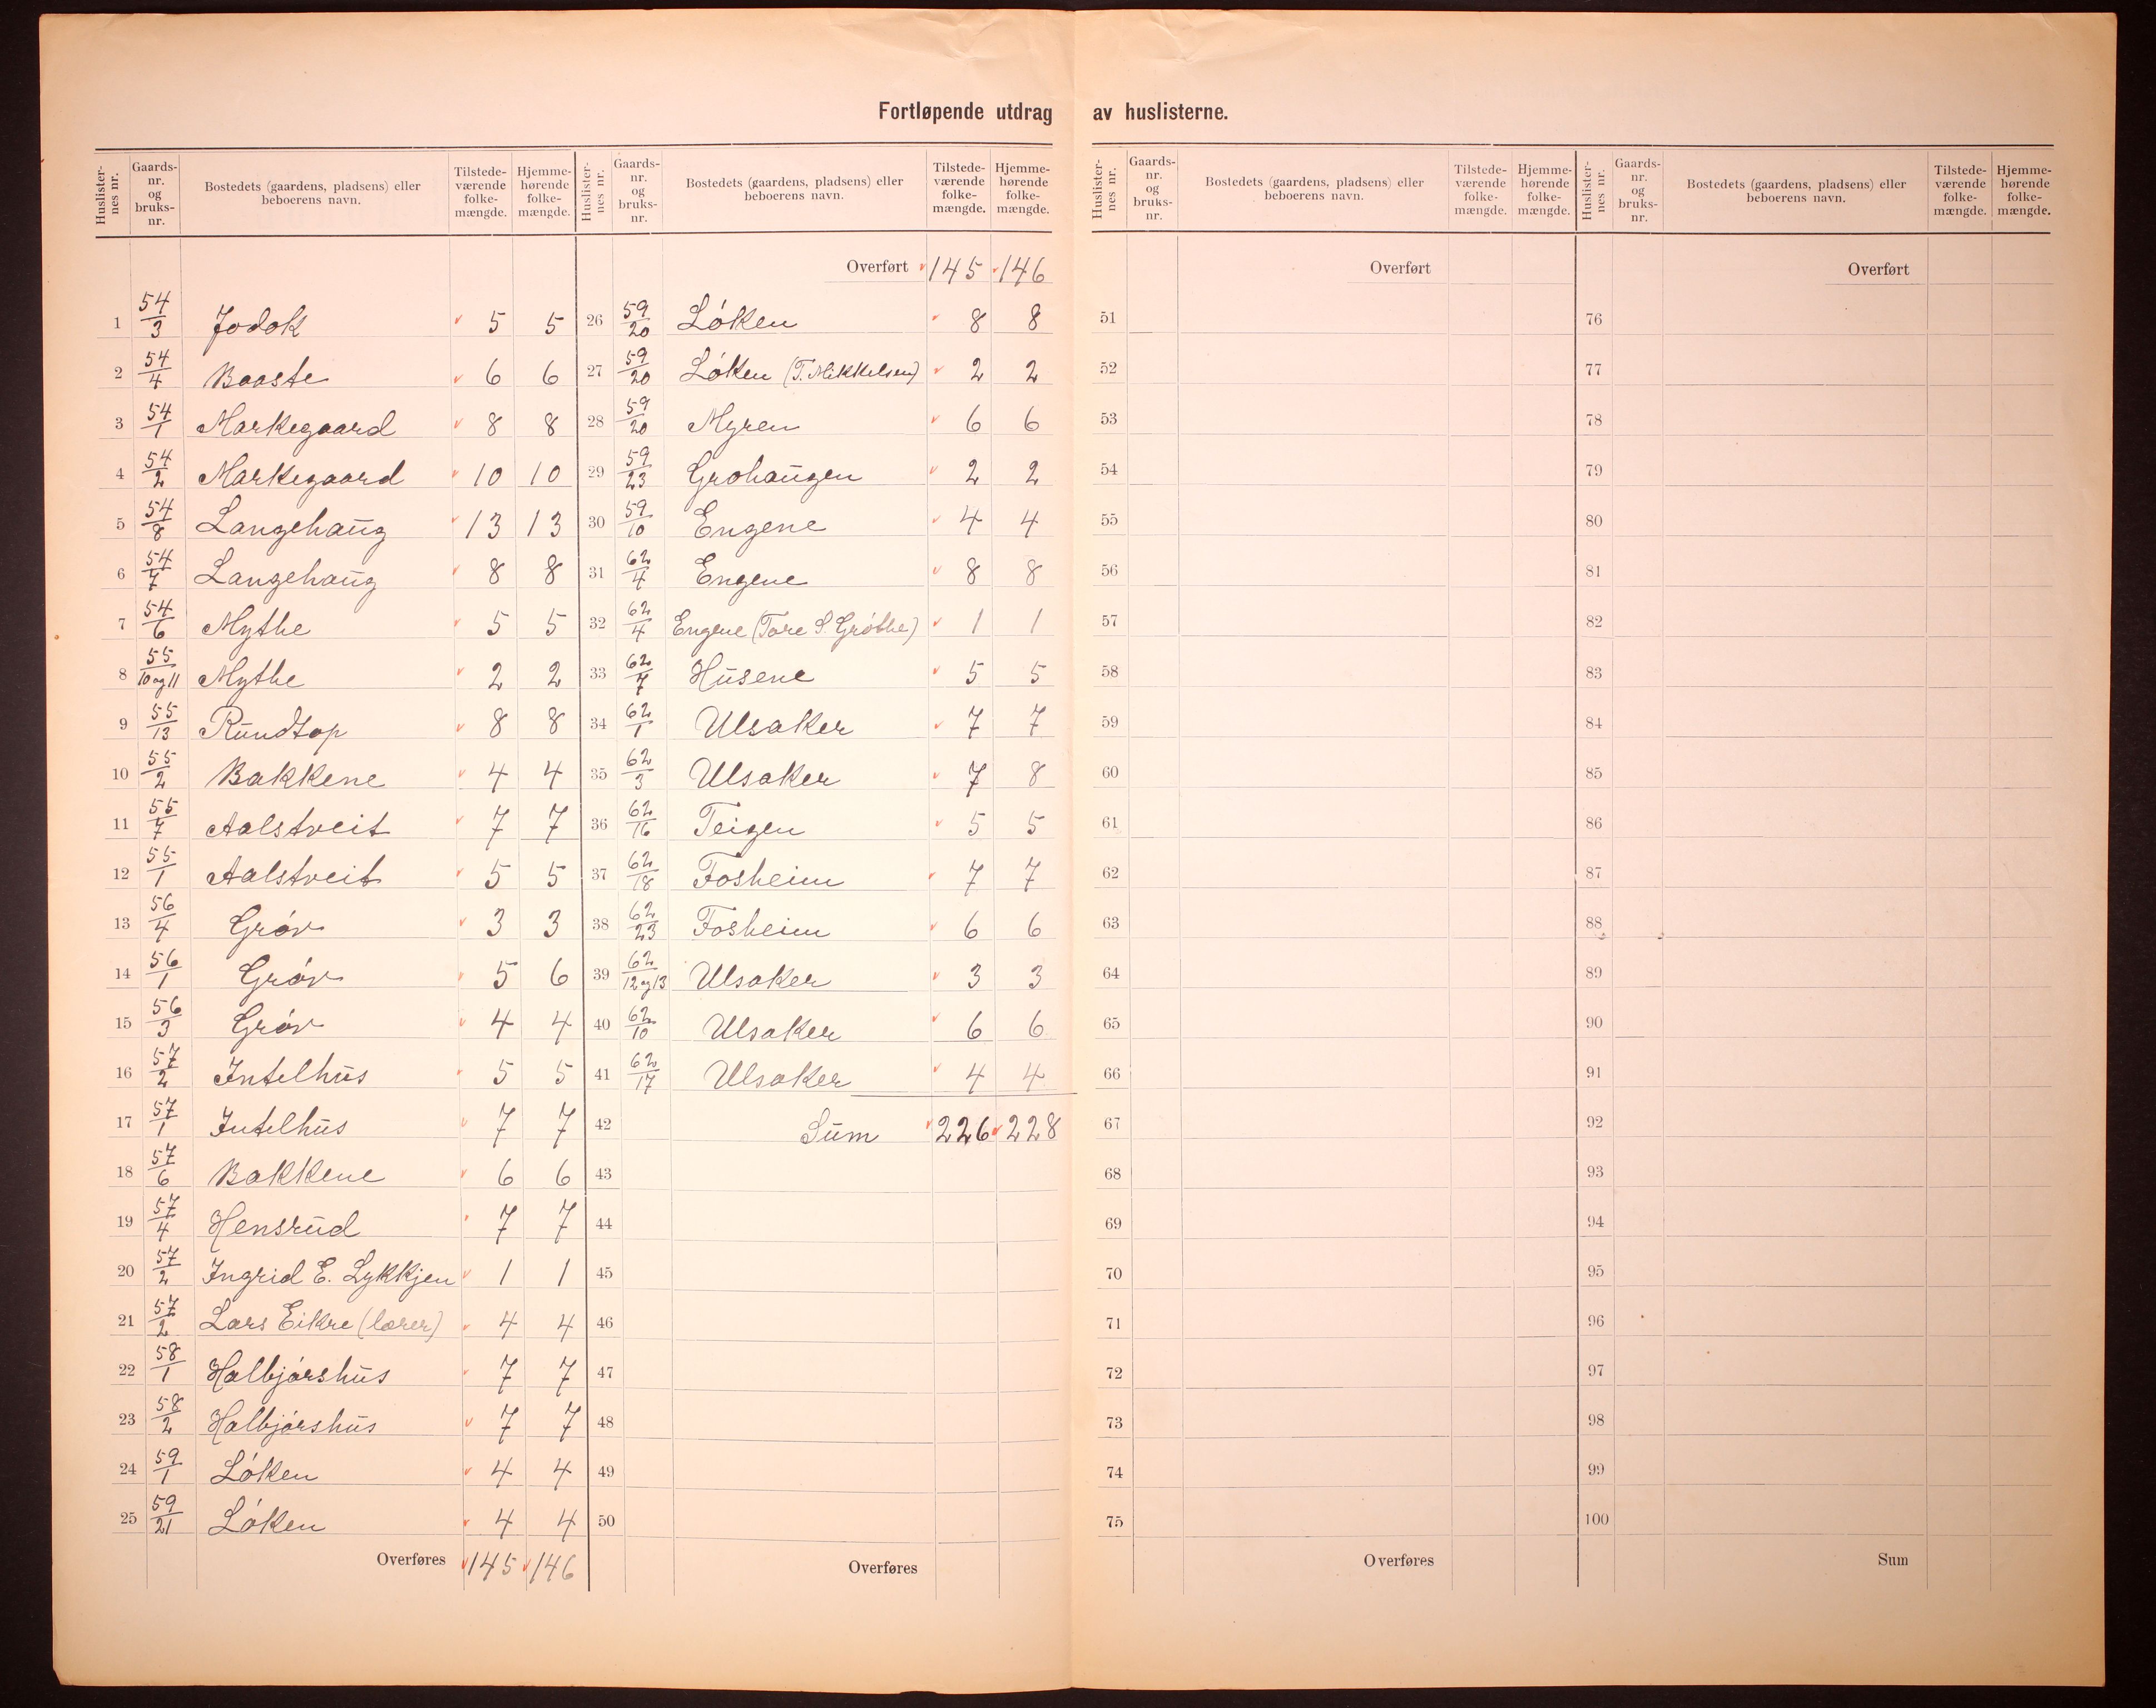 Fortløpende utdrag av huslisterne.
Huslister-nes nr. | Gaards-nr. og bruks-nr. | Bostedets (gaardens, pladsens) eller beboerens navn. | Tilstede-værende folke-mængde. | Hjemme-hørende folke-mængde.
1 54/3 Jodok 5 5
2 54/4 Baaste 6 6
3 54/1 Markegaard 8 8
4 54/2 Markegaard 10 10
5 54/8 Langehaug 13 13
6 54/7 Langehaug 8 8
7 54/6 Mythe 5 5
8 55/10 og 11 Mythe 2 2
9 55/13 Rundtop 8 8
10 55/2 Bakkene 4 4
11 55/7 Aalstveit 7 7
12 55/1 Aalstveit 5 5
13 56/4 Grøv 3 3
14 56/1 Grøv 5 6
15 56/3 Grøv 4 4
16 57/2 Intelhus 5 5
17 57/1 Intelhus 7 7
18 57/6 Bakkene 6 6
19 57/4 Hensrud 7 7
20 57/2 Ingrid E. Lykkjen 1 1
21 57/2 Lars Eikre (lærer) 4 4
22 58/1 Halbjørshus 7 7
23 58/2 Halbjørshus 7 7
24 59/1 Løken 4 4
25 59/21 Løken 4 4
Overføres 145 146
Huslister-nes nr. | Gaards-nr. og bruks-nr. | Bostedets (gaardens, pladsens) eller beboerens navn. | Tilstede-værende folke-mængde. | Hjemme-hørende folke-mængde.
Overført 145 146
26 59/20 Løken 8 8
27 59/20 Løken (T. Mikkelsen) 2 2
28 59/20 Myren 6 6
29 59/23 Grohaugen 2 2
30 59/10 Engene 4 4
31 62/4 Engene 8 8
32 62/4 Engene (Tore S. Grøthe) 1 1
33 62/7 Husene 5 5
34 62/1 Ulsaker 7 7
35 62/3 Ulsaker 7 8
36 62/16 Teigen 5 5
37 62/18 Fosheim 7 7
38 62/23 Fosheim 6 6
39 62/12 og 13 Ulsaker 3 3
40 62/10 Ulsaker 6 6
41 62/17 Ulsaker 4 4
42 Sum 226 228
43
44
45
46
47
48
49
50
Overføres
Huslister-nes nr. | Gaards-nr. og bruks-nr. | Bostedets (gaardens, pladsens) eller beboerens navn. | Tilstede-værende folke-mængde. | Hjemme-hørende folke-mængde.
Overført
51
52
53
54
55
56
57
58
59
60
61
62
63
64
65
66
67
68
69
70
71
72
73
74
75
Overføres
Huslister-nes nr. | Gaards-nr. og bruks-nr. | Bostedets (gaardens, pladsens) eller beboerens navn. | Tilstede-værende folke-mængde. | Hjemme-hørende folke-mængde.
Overført
76
77
78
79
80
81
82
83
84
85
86
87
88
89
90
91
92
93
94
95
96
97
98
99
100
Sum